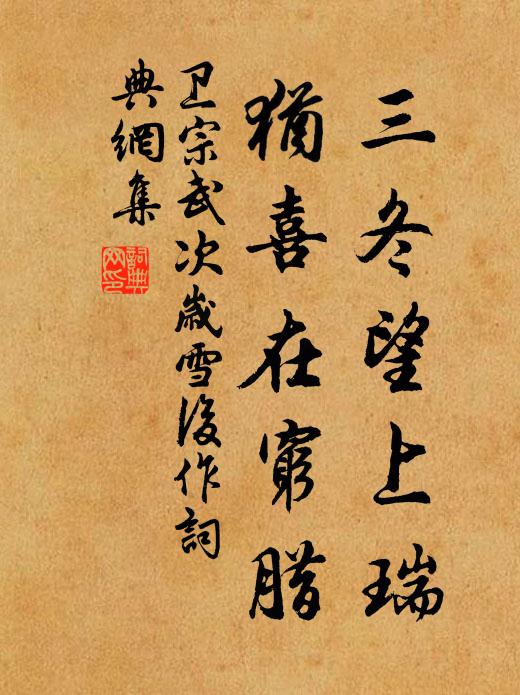 三冬望上瑞
猶喜在窮腊
卫宗武次歲雪後作詞
典網集
詞典
网印